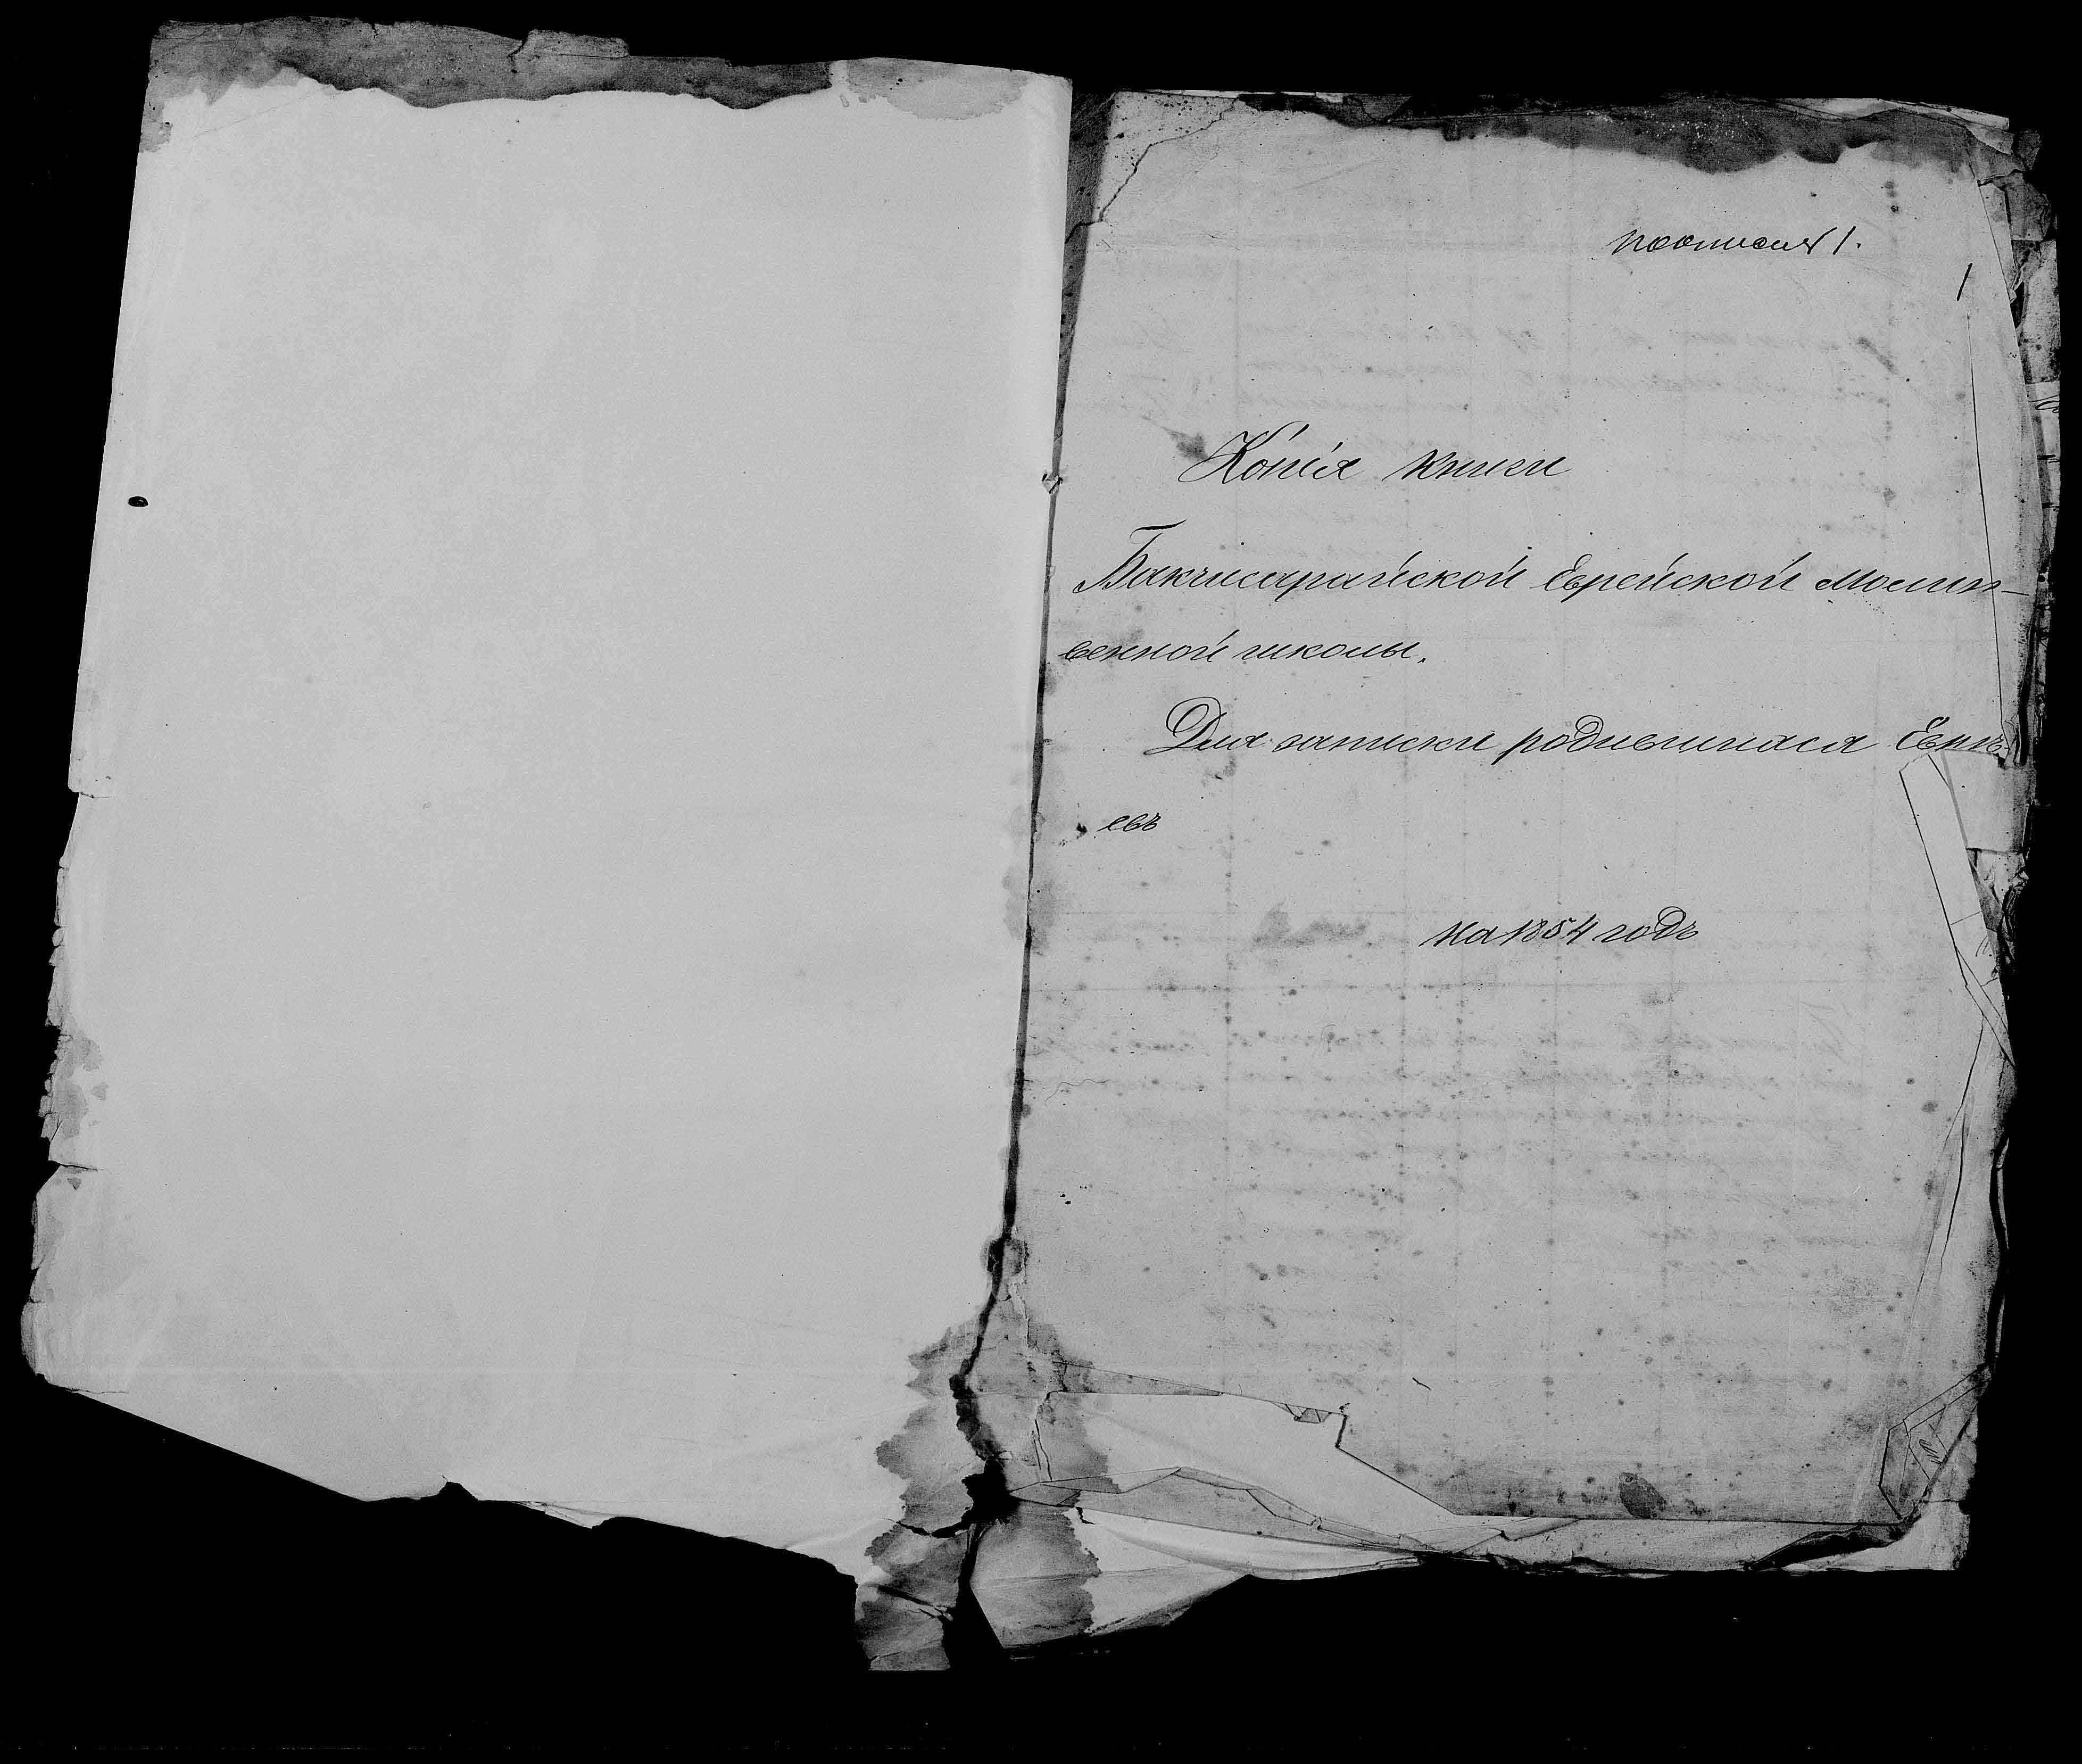 1.
1
Копія книги
Бакчисарайской Еврейской молит-
венной школы.
Для записки родившихся Евре-
евъ
на 1854 годъ